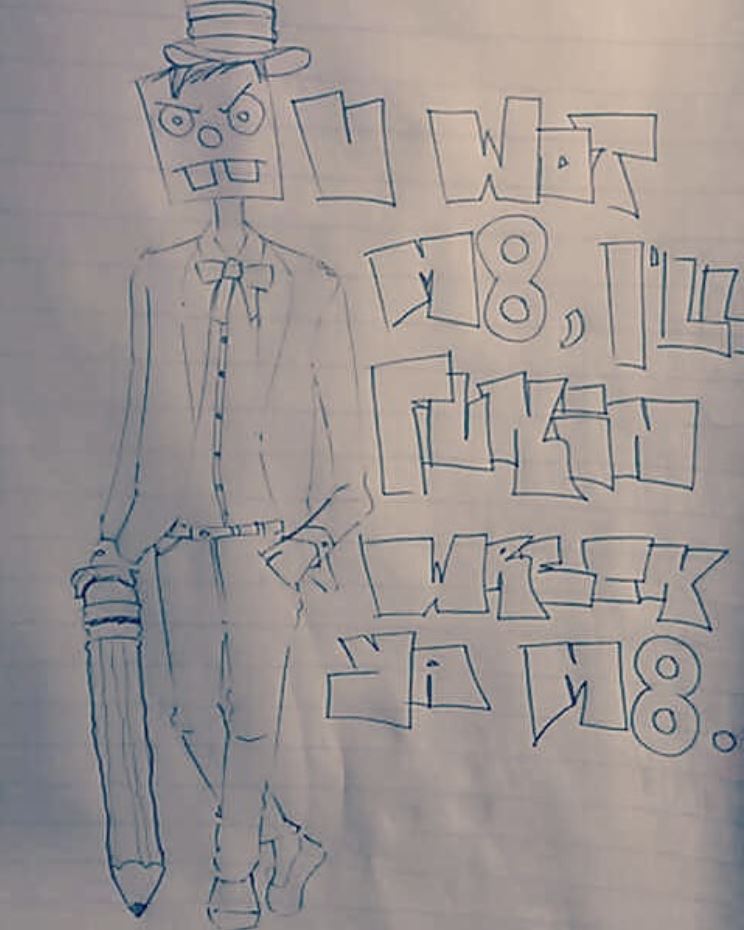 U WOT
M8, I'LL
FUKIN
WRECK
YA M8.